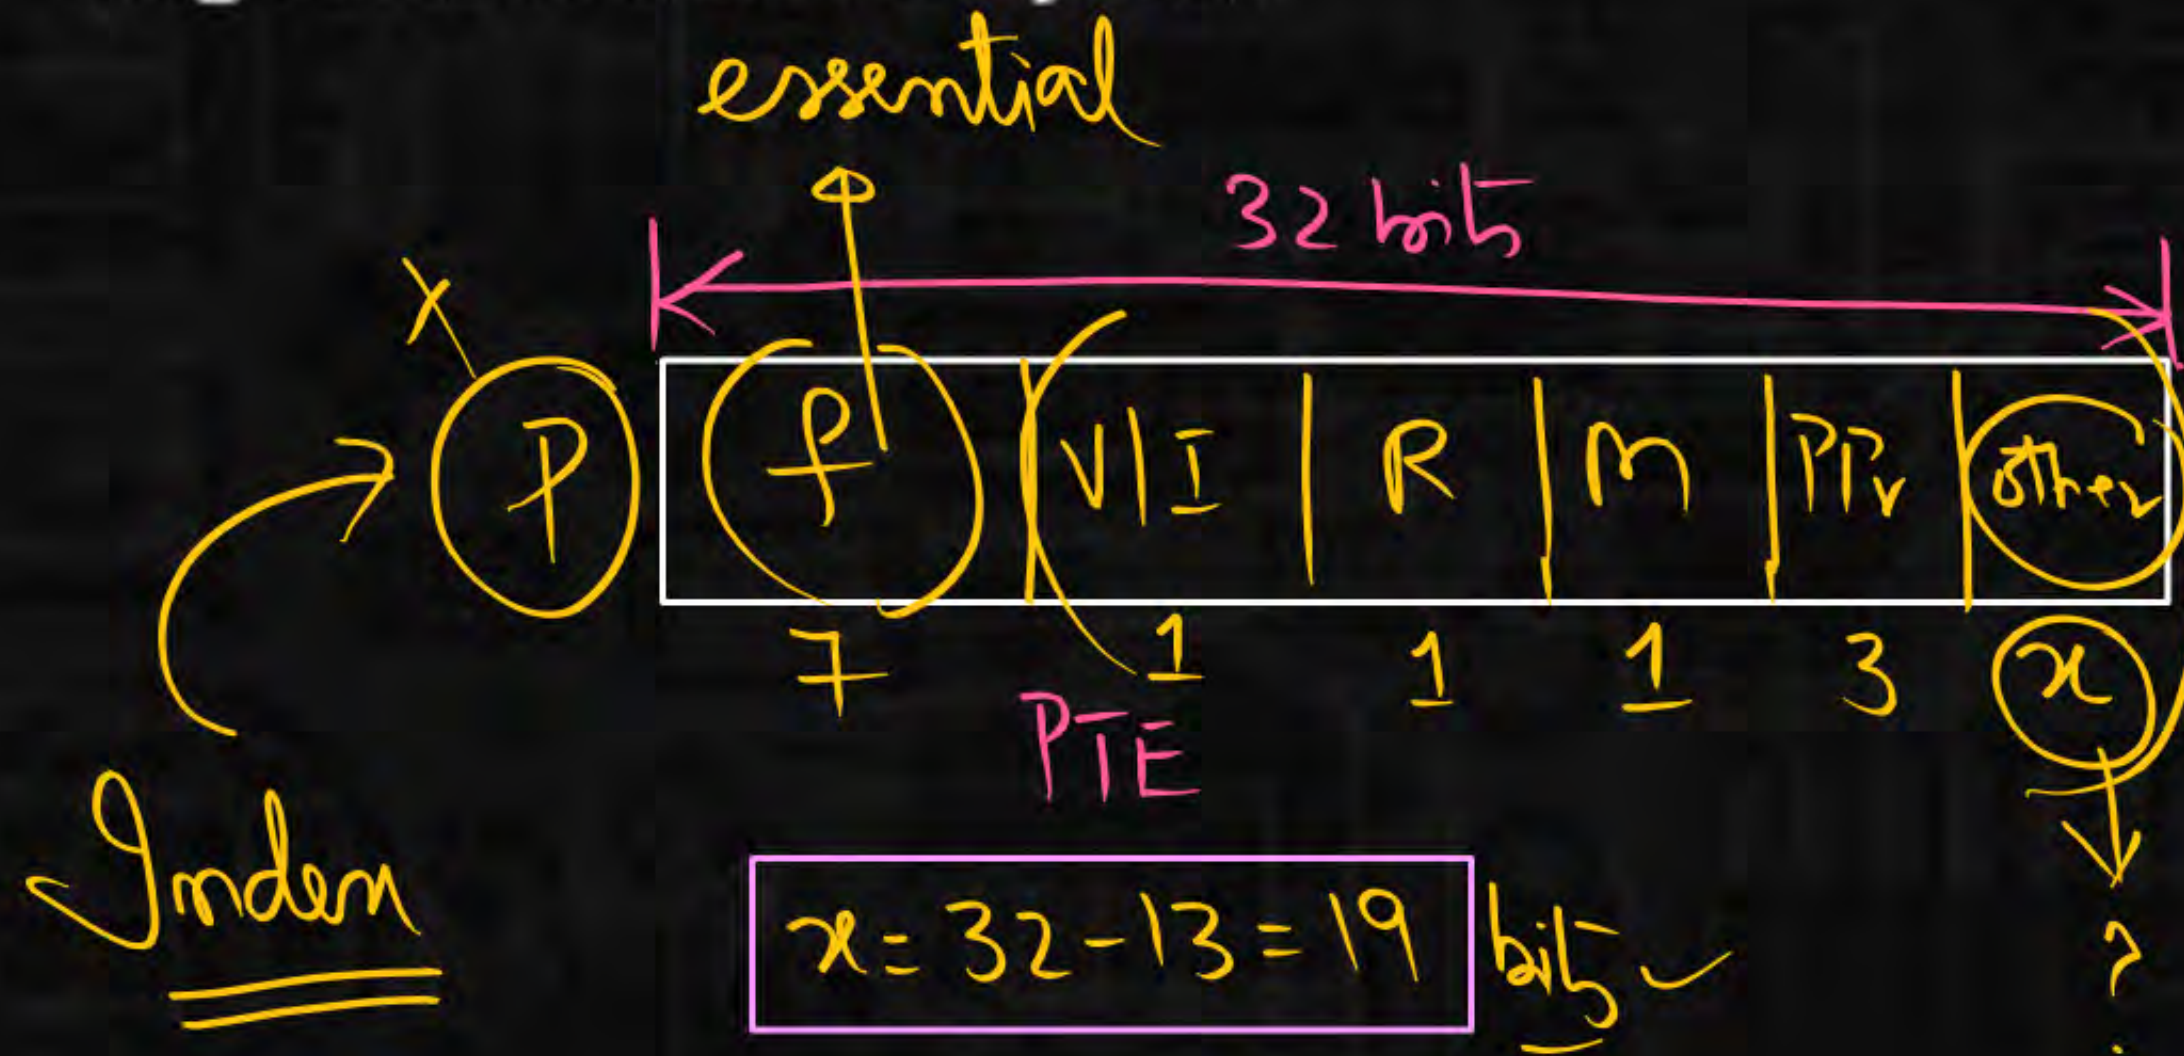 essential
32 bits
X
P f V|I R M PPr other
7 1 1 1 3 x
PTE
Index
x = 32 - 13 = 19 bits ✓
?